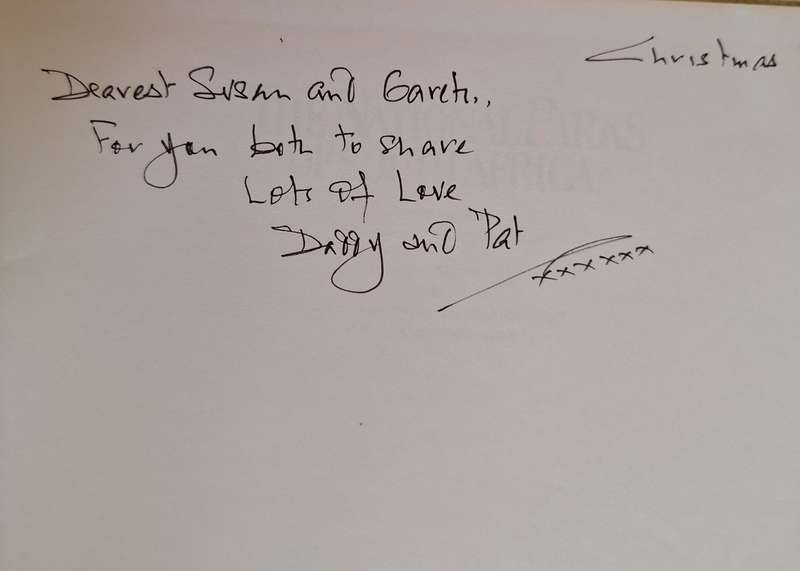 Christmas
Dearest Susan and Gareth,,
For you both to share
Lots of Love
Daddy and Pat
xxxxxx
THE NATIONAL PARKS
AFRICA